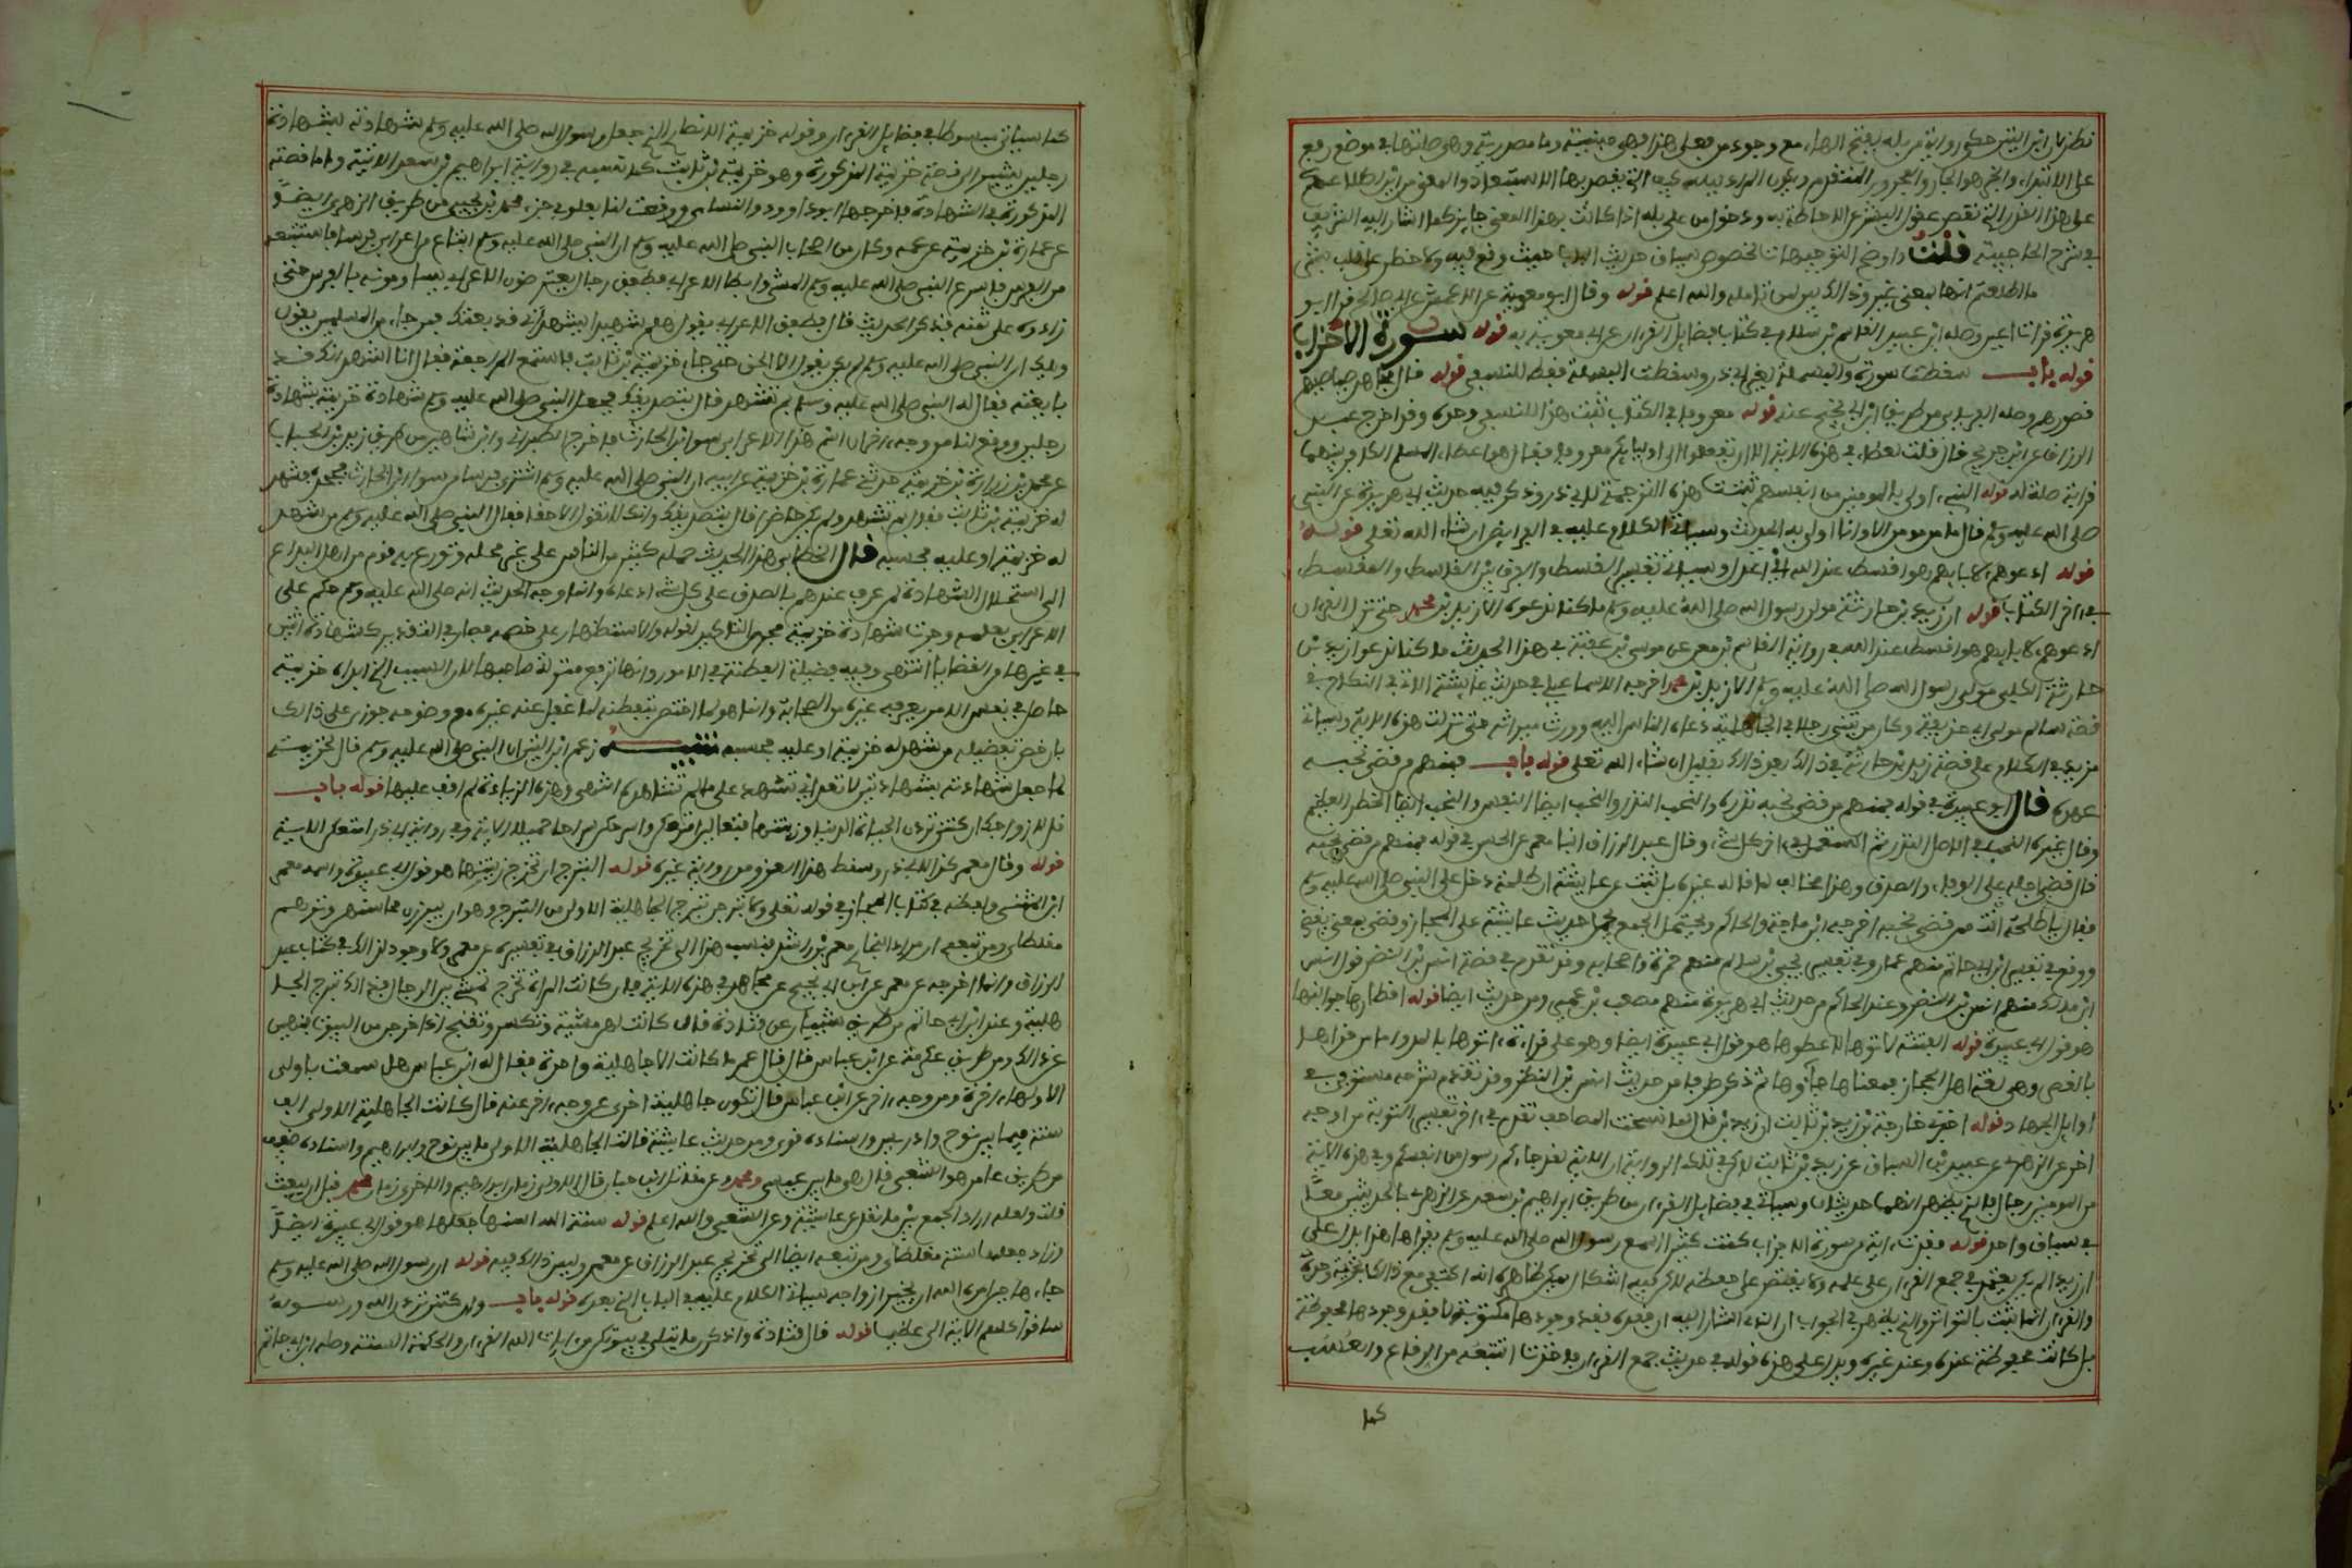 على الابتداء والخبر هو الجار والمجرور المتقدم ويكون المراد ببله كيف التي يقصد بها الاستبعاد والمعنى من اين اطلاعكم
على هذا القدر الذي تقصر عقول البشر عن الاحاطة به ودخول من على بله اذا كانت بهذا المعنى جايز كما اشار اليه الشريف
في شرح الحاجبية قلت واوضح التوجيهات لخصوص سياق حديث الباب حيث وقع فيه ولا خطر على قلب بشر
ما اطلعتم انها بمعنى غير وذالك بين لمن تامله والله اعلم قوله وقال ابو معوية عن الاعمش عن ابي صالح قرا ابو
هريرة قرات اعين وصله ابو عبيد القاسم بن سلام في كتاب فضايل القرءان عن ابي معوية به قوله سورة الاحزاب
قوله باب سقطت سورة والبسملة لغير ابي ذر وسقطت البسملة فقط للنسفي قوله قال مجاهد صياصيهم
قصورهم وصله الفريابي من طريق ابن ابي نجيح عنه قوله معروفا في الكتاب ثبت هذا للنسفي وحده وقد اخرج عبد
الرزاق عن ابن جريج قال قلت لعطاء في هذه الاية الا ان تفعلوا الى اوليايكم معروفا فقال هو اعطاء المسلم الكافر بينهما
قرابة صلة له قوله النبي اولى بالمومنين من انفسهم ثبتت هذه الترجمة لابي ذر وذكر فيه حديث ابي هريرة عن النبي
صلى الله عليه وسلم قال ما من مومن الا وانا اولى به الحديث وسياتي الكلام عليه في الفرايض ان شاء الله تعلى قوله
قوله ادعوهم لابايهم هو اقسط عند الله اي اعدل وسياتي تفسير القسط والفرق بين القاسط والمقسط
في اخر الكتاب قوله ان زيد بن حارثة مولى رسول الله صلى الله عليه وسلم ما كنا ندعوه الا زيد بن محمد حتى نزل القرءان
ادعوهم لابايهم هو اقسط عند الله في رواية القاسم بن معن عن موسى بن عقبة في هذا الحديث ما كنا ندعوا زيد بن
حارثة الكلبي مولى رسول الله صلى الله عليه وسلم الا زيد بن محمد اخرجه الاسماعيلي في حديث عايشة الاتي في النكاح في
قصة سالم مولى ابي حذيفة وكان من تبنى رجلا في الجاهلية دعاه الناس اليه وورث ميراثه حتى نزلت هذه الاية وسياتي
مزيد في الكلام على قصة زيد بن حارثة في ذالك بعد ذالك بقليل ان شاء الله تعلى قوله باب فمنهم من قضى نحبه
عهده قال ابو عبيدة في قوله فمنهم من قضى نحبه نذره والنحب النذر والنحب ايضا النفس والنحب ايضا الخطر العظيم
وقال غيره النحب في الاصل النذر ثم استعمل في اخر كل شيء وقال عبد الرزاق انبا معمر عن الحسن في قوله فمنهم من قضى نحبه
قال قضى اجله على الوفاء والصدق وهذا مخالف لما قاله غيره بل ثبت عن عايشة ان طلحة دخل على النبي صلى الله عليه وسلم
فقال يا طلحة انت ممن قضى نحبه اخرجه ابن ماجة والحاكم ويمكن الجمع بحمل حديث عايشة على المجاز وقضى بمعنى يقضي
ووقع في تفسير ابن ابي حاتم منهم عمار وفي تفسير يحيى بن سلام منهم حمزة واصحابه وقد تقدم في قصة انس بن النضر قول انس
ابن مالك منهم انس بن النضر وعند الحاكم من حديث ابي هريرة منهم مصعب بن عمير ومن حديث ايضا قوله اقطارها جوانبها
هو قول ابي عبيدة قوله الفتنة لاتوها لاعطوها هو قول ابي عبيدة ايضا وهو على قراءة اتوها بالمد واما من قراها
بالقصر وهي لغة اهل الحجاز فمعناها جاءوها ثم ذكر طرفا من حديث انس بن النضر وقد تقدم شرحه مستوفى في
اوايل الجهاد قوله اخبرني خارجة بن زيد بن ثابت ان زيد بن ثابت قال لما نسخت المصاحف تقدم في اخر تفسير التوبة من اوجه
اخر عن الزهري عن عبيد بن السباق عن زيد بن ثابت لكن في تلك الرواية ان الاية لقد جاءكم رسول من انفسكم وفي هذه الاية
من المومنين رجال فالذي يظهر انهما حديثان وسياتي في فضايل القرءان من طريق ابراهيم بن سعد عن الزهري بالحديثين معا
في سياق واحد قوله فقدت اية من سورة الاحزاب كنت كثيرا اسمع رسول الله صلى الله عليه وسلم يقراها هذا يدل على
ان زيدا لم يكن يعتمد في جمع القرءان على علمه ولا يقتصر على حفظه لاكن فيه اشكال لان ظاهره انه اكتفى مع ذالك بخزيمة وحده
والقرءان انما يثبت بالتواتر والذي يظهر في الجواب ان الذي اشار اليه ان فقده فقد وجودها مكتوبة لا فقد وجودها محفوظة
بل كانت محفوظة عنده وعند غيره ويدل على هذا قوله في حديث جمع القرءان فاخذت اتتبعه من الرقاع والعسب
كما
كما سياتي مبسوطا في فضايل القرءان وقوله خزيمة الانصاري الذي جعل رسول الله صلى الله عليه وسلم شهادته بشهادة
رجلين يشير الى قصة خزيمة المذكورة وهو خزيمة بن ثابت كما تقدم في رواية ابراهيم بن سعد الاتية واما قصته
المذكورة في الشهادة فاخرجها ابو داوود والنساءي ووقعت لنا بعلو في جزء محمد بن يحيى من طريق الزهري ايضا
عن عمارة بن خزيمة عن عمه وكان من اصحاب النبي صلى الله عليه وسلم ان النبي صلى الله عليه وسلم ابتاع من اعرابي فرسا فاستتبعه
من الفرس فاسرع النبي صلى الله عليه وسلم المشي وابطا الاعرابي فطفق رجال يعترضون الاعرابي يساومونه بالفرس حتى
زادوه على ثمنه فذكر الحديث قال فطفق الاعرابي يقول هلم شهيدا يشهد اني قد بعتك فمن جاء من المسلمين يقول
ويلك ان النبي صلى الله عليه وسلم لم يكن يقول الا الحق حتى جاء خزيمة بن ثابت فاستمع المراجعة فقال انا اشهد انك قد
بايعته فقال له النبي صلى الله عليه وسلم بم تشهد قال بتصديقك فجعل النبي صلى الله عليه وسلم شهادة خزيمة بشهادة
رجلين ووقع لنا من وجه اخر ان اسم هذا الاعرابي سواء بن الحارث فاخرج الطبراني وابن شاهين من طريق زيد بن الحباب
عن محمد بن زرارة بن خزيمة حدثني عمارة بن خزيمة عن ابيه ان النبي صلى الله عليه وسلم اشترى فرسا من سواء بن الحارث فجحده فشهد
له خزيمة بن ثابت فقال بم تشهد ولم تكن حاضرا قال بتصديقك وانك لا تقول الا حقا فقال النبي صلى الله عليه وسلم من شهد
له خزيمة او عليه فحسبه قال الخطابي هذا الحديث حمله كثير من الناس على غير محمله وتذرع به قوم من اهل البدع
الى استحلال الشهادة لمن عرف عندهم بالصدق على كل شيء ادعاه وانما وجه الحديث انه صلى الله عليه وسلم حكم على
الاعرابي بعلمه وجرت شهادة خزيمة مجرى التاكيد لقوله والاستظهار على خصمه فصار في التقدير كشهادة اثنين
في غيرها من القضايا انتهى وفيه فضيلة الفطنة في الامور وانها ترفع منزلة صاحبها لان السبب الذي ابداه خزيمة
حاصل في نفس الامر يعرفه غيره من الصحابة وانما هو لما اختص بتفطنه لما غفل عنه غيره مع وضوحه جوزي على ذالك
بان خص بفضيلة من شهد له خزيمة او عليه فحسبه تنبيه زعم ابن التين ان النبي صلى الله عليه وسلم قال لخزيمة
لما جعل شهادته بشهادتين لا تعد اي تشهد على ما لم تشاهده انتهى وهذه الزيادة لم اقف عليها قوله باب
قل لازواجك ان كنتن تردن الحياة الدنيا وزينتها فتعالين امتعكن واسرحكن سراحا جميلا الاية وفي رواية ابي ذر امتعكن الاية
قوله وقال معمر كذا لابي ذر وسقط هذا العزو من رواية غيره قوله التبرج ان تخرج زينتها هو قول ابي عبيدة واسمه معمر
ابن المثنى ولفظه في كتاب المجاز في قوله تعلى ولا تبرجن تبرج الجاهلية الاولى من التبرج وهو ان يبرزن محاسنهن وتوهم
مغلطاي ومن تبعه ان مراد البخاري معمر بن راشد فنسب هذا الى تخريج عبد الرزاق في تفسيره عن معمر ولا وجود لذالك في كتاب عبد
الرزاق وانما اخرجه عن معمر عن ابن ابي نجيح عن مجاهد في هذه الاية قال كانت المراة تخرج تتمشى بين الرجال فذالك تبرج الجا
هلية وعند ابن ابي حاتم من طريق شيبان عن قتادة قال كانت لهن مشية وتكسر وتغنج اذا خرجن من البيوت فنهين
عن ذالك ومن طريق عكرمة عن ابن عباس قال قال عمر ما كانت الا جاهلية واحدة فقال له ابن عباس هل سمعت باولى
الا ولها اخرة ومن وجه اخر عن ابن عباس قال تكون جاهلية اخرى ومن وجه اخر عنه قال كانت الجاهلية الاولى الف
سنة فيما بين نوح وادريس واسناده قوي ومن حديث عايشة قالت الجاهلية الاولى ما بين نوح وابراهيم واسناده ضعيف
من طريق عامر هو الشعبي قال هو ما بين عيسى ومحمد وعن مقاتل ابن حيان قال الاولى زمان ابراهيم والاخرى زمان محمد قبل ان يبعث
قلت ولعله اراد الجمع بين ما نقل عن عايشة وعن الشعبي والله اعلم قوله سنة الله استنها جعلها هو قول ابي عبيدة ايضا
وزاد جعلها سنة مغلطاي ومن تبعه ايضا الى تخريج عبد الرزاق عن معمر وليس ذالك فيه قوله ان رسول الله صلى الله عليه وسلم
جاءها حين امره الله ان يخير ازواجه سياتي الكلام عليه في الباب الذي بعده قوله باب وان كنتن تردن الله ورسوله
ساقوا كلهم الاية الى عظيما قوله قال قتادة واذكرن ما يتلى في بيوتكن من ايات الله القرءان والحكمة السنة وصله ابن ابي حاتم